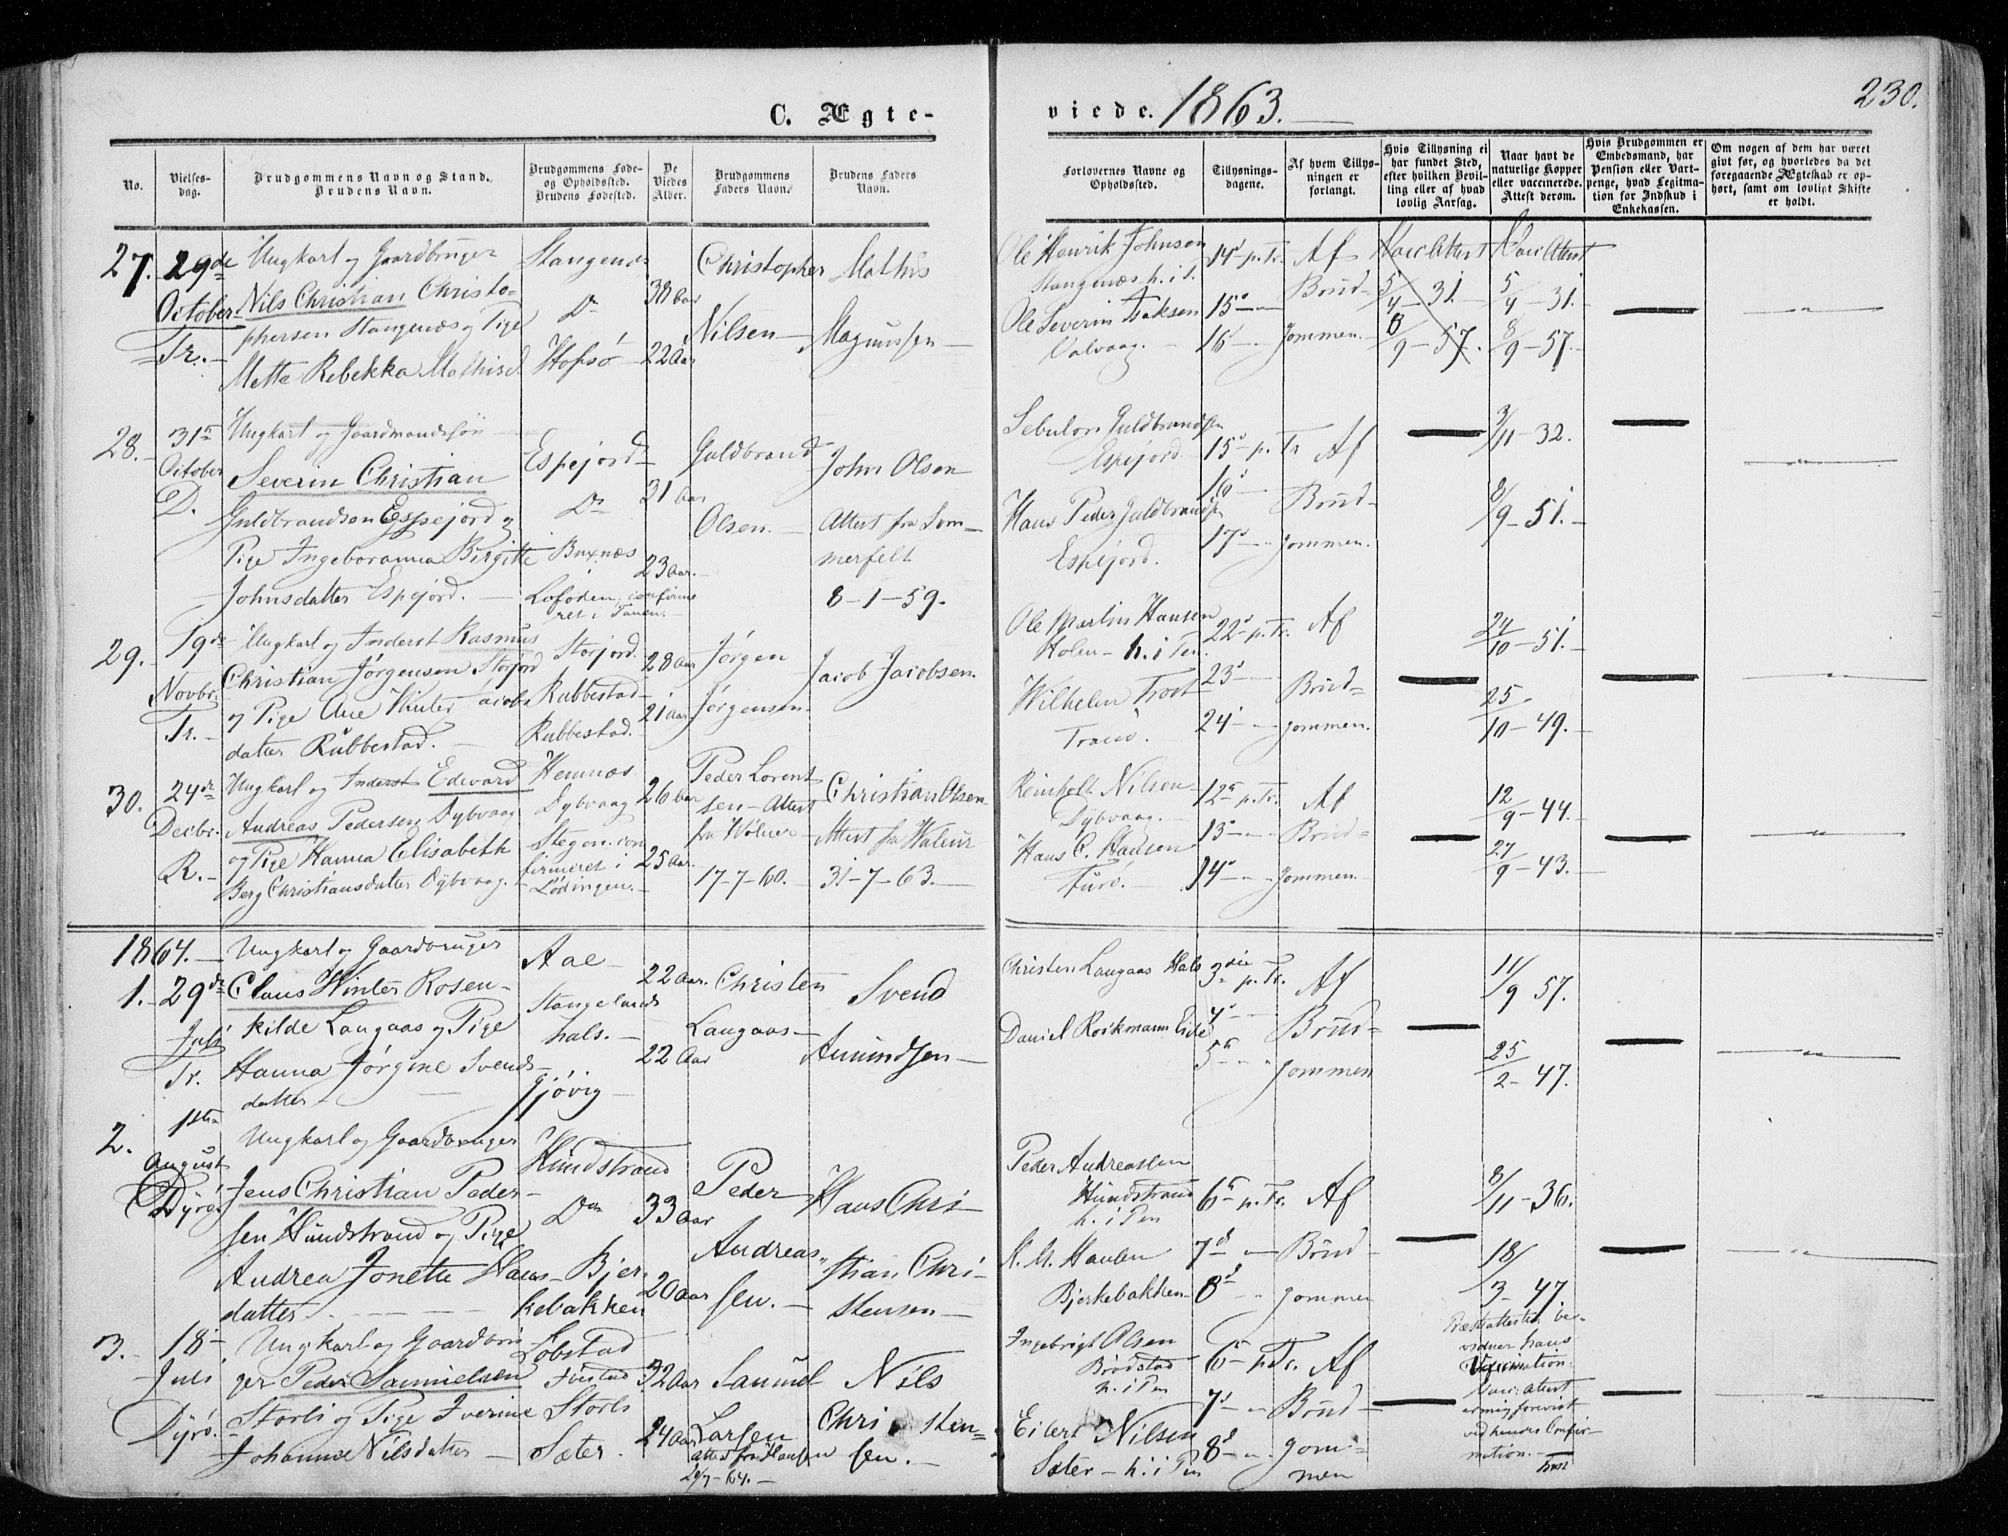 C. Ægte-
viede. 1863.
230.
No.
Vielses-
dag.
Brudgommens Navn og Stand.
Brudens Navn.
Brudgommens Føde-
og Opholdssted.
Brudens Fødested.
De
Viedes
Alder.
Brudgommens
Faders Navn.
Brudens Faders
Navn.
Forlovernes Navne og
Opholdssted.
Tillysnings-
dagene.
Af hvem Tillys-
ningen er
forlangt.
Hvis Tillysning ei
har fundet Sted,
efter hvilken Bevil-
ling eller af hvad
lovlig Aarsag.
Naar havt de
naturlige Kopper
eller vaccinerede.
Attest derom.
Hvis Brudgommen er
Embedsmand, har
Pension eller Vart-
penge, hvad Legitima-
tion for Indskud i
Enkekassen.
Om nogen af dem har været
givt før, og hvorledes da det
foregaaende Ægteskab er op-
hørt, samt om lovligt Skifte
er holdt.
27.
29de
October
Tr.
Ungkarl og Gaardbruger
Nils Christian Christo-
phersen Stangenæs og Pige
Mette Rebekka Mathisd.
Stangenæs
Do
Hofsø
38 Aar
22 Aar
Christopher
Nilsen
Mathis
Magnussen
Ole Henrik Johnsen
Stangenæs h. i P.
Ole Severin Isaksen
Valvaag.
14d p. Tr.
15d
16
Af
Brud-
gommen.
Vacc Attest
5/4 - 31.
8/9 - 57.
Vacc Attest
5/4 - 31.
8/9 - 57.
28.
31te
October
D.
Ungkarl og Gaardmandssøn
Severin Christian
Guldbrandsen Espejord og
Pige Ingeboranna Birgitte
Johnsdatter Espejord.
Espejord
Do
Buxnæs
Lofoden, confirme
ret i Tanen.
31 Aar
23 Aar.
Guldbrand
Olsen.
John Olsen
Attest fra Som-
merfelt
8-1-59.
Sebulon Guldbrandsen
Espejord
Hans Peder Guldbrandsen
Espejord.
15d p. Tr.
16d
17d
Af
Brud-
gommen.
3/11 - 32.
8/9 - 51.
29.
19de
Novbr.
Tr.
Ungkarl og Inderst Rasmus
Christian Jørgensen Storjord
og Pige Ane Winter Jacobs
datter Rubbestad.
Storjord
Rubbestad
Rubbestad.
28 Aar
21 Aar
Jørgen
Jørgensen.
Jacob Jacobsen.
Ole Martin Hansen
Holm - h. i Pen.
Wilhelm Trost
22d p. Tr.
23d
24d
Af
Brud-
gommen.
24/10 - 51.
25/10 - 49.
30.
24de
Decbr.
R.
Ungkarl og Inderst Edward
Andreas Pedersen Dybvaag
og Pige Hanna Elisabeth
Berg Christiansdatter Dybvaag.
Hemnæs
Dybvaag
Stegen, con
firmeret i
Lødingen.
26 Aar
25 Aar.
Peder Lorent
sen - Attest
fra Wolner
17-7-60.
Christian Olsen
Attest fra Wolner
31-7-63.
Reinholt Nilsen
Dybvaag.
Hans C. Hansen
12te p. Tr.
13
14d
Af
Brud-
gommen.
12/9 - 44.
27/9 - 43.
1864.
1.
29de
Juli
Tr.
Ungkarl og Gaardbruger
Claus Winter Rosen-
kilde Langaas og Pige
Hanna Jørgine Svends-
datter
Aae
Stangelands
hals.
Gjøvig
22 Aar.
22 Aar
Christen
Langaas
Svend
Amundsen
Christen Langaas Hals
Daniel Roikmann Eide
3die p. Tr.
4d
5te
Af
Brud-
gommen
11/9 57.
25/2 - 47.
2.
1ste
August
Dyrø.
Ungkarl og Gaardbruger
Jens Christian Peder-
sen Hundstrand og Pige
Andrea Jonette Hans-
datter
Hundstrand
Do
Bjer-
kebakken
33 Aar
20 Aar
Peder
Andreas-
sen.
Hans Chri
stian Chri-
stensen
Peder Andreassen
Hundstrand
h. i Pen
Hansen
Bjerkebakken
6te p. Tr.
7d
8d
Af
Brud-
gommen
8/11 - 36.
18/3 - 47.
3.
18
Juli
Dyrø.
Ungkarl og Gaardbru
ger Peder Samuelsen
Storli og Pige Iverine
Johanne Nilsdatter
Storli
Sæter.
32 Aar
24 Aar
Samuel
Larsen
Attest fra Hansen
20/7-64.
Nils
Christen-
sen.
Ingebrigt Olsen
Brødstad
h. i Pen
Eilert Nilsen
Sæter - h. i Pen
6te p. Tr.
7d
8d
Af
Brud-
gom-
men
Præsteattesten be-
vidner hans
Vaccination.
Vacc. Attest
forevist
ved hendes Confir-
mation.